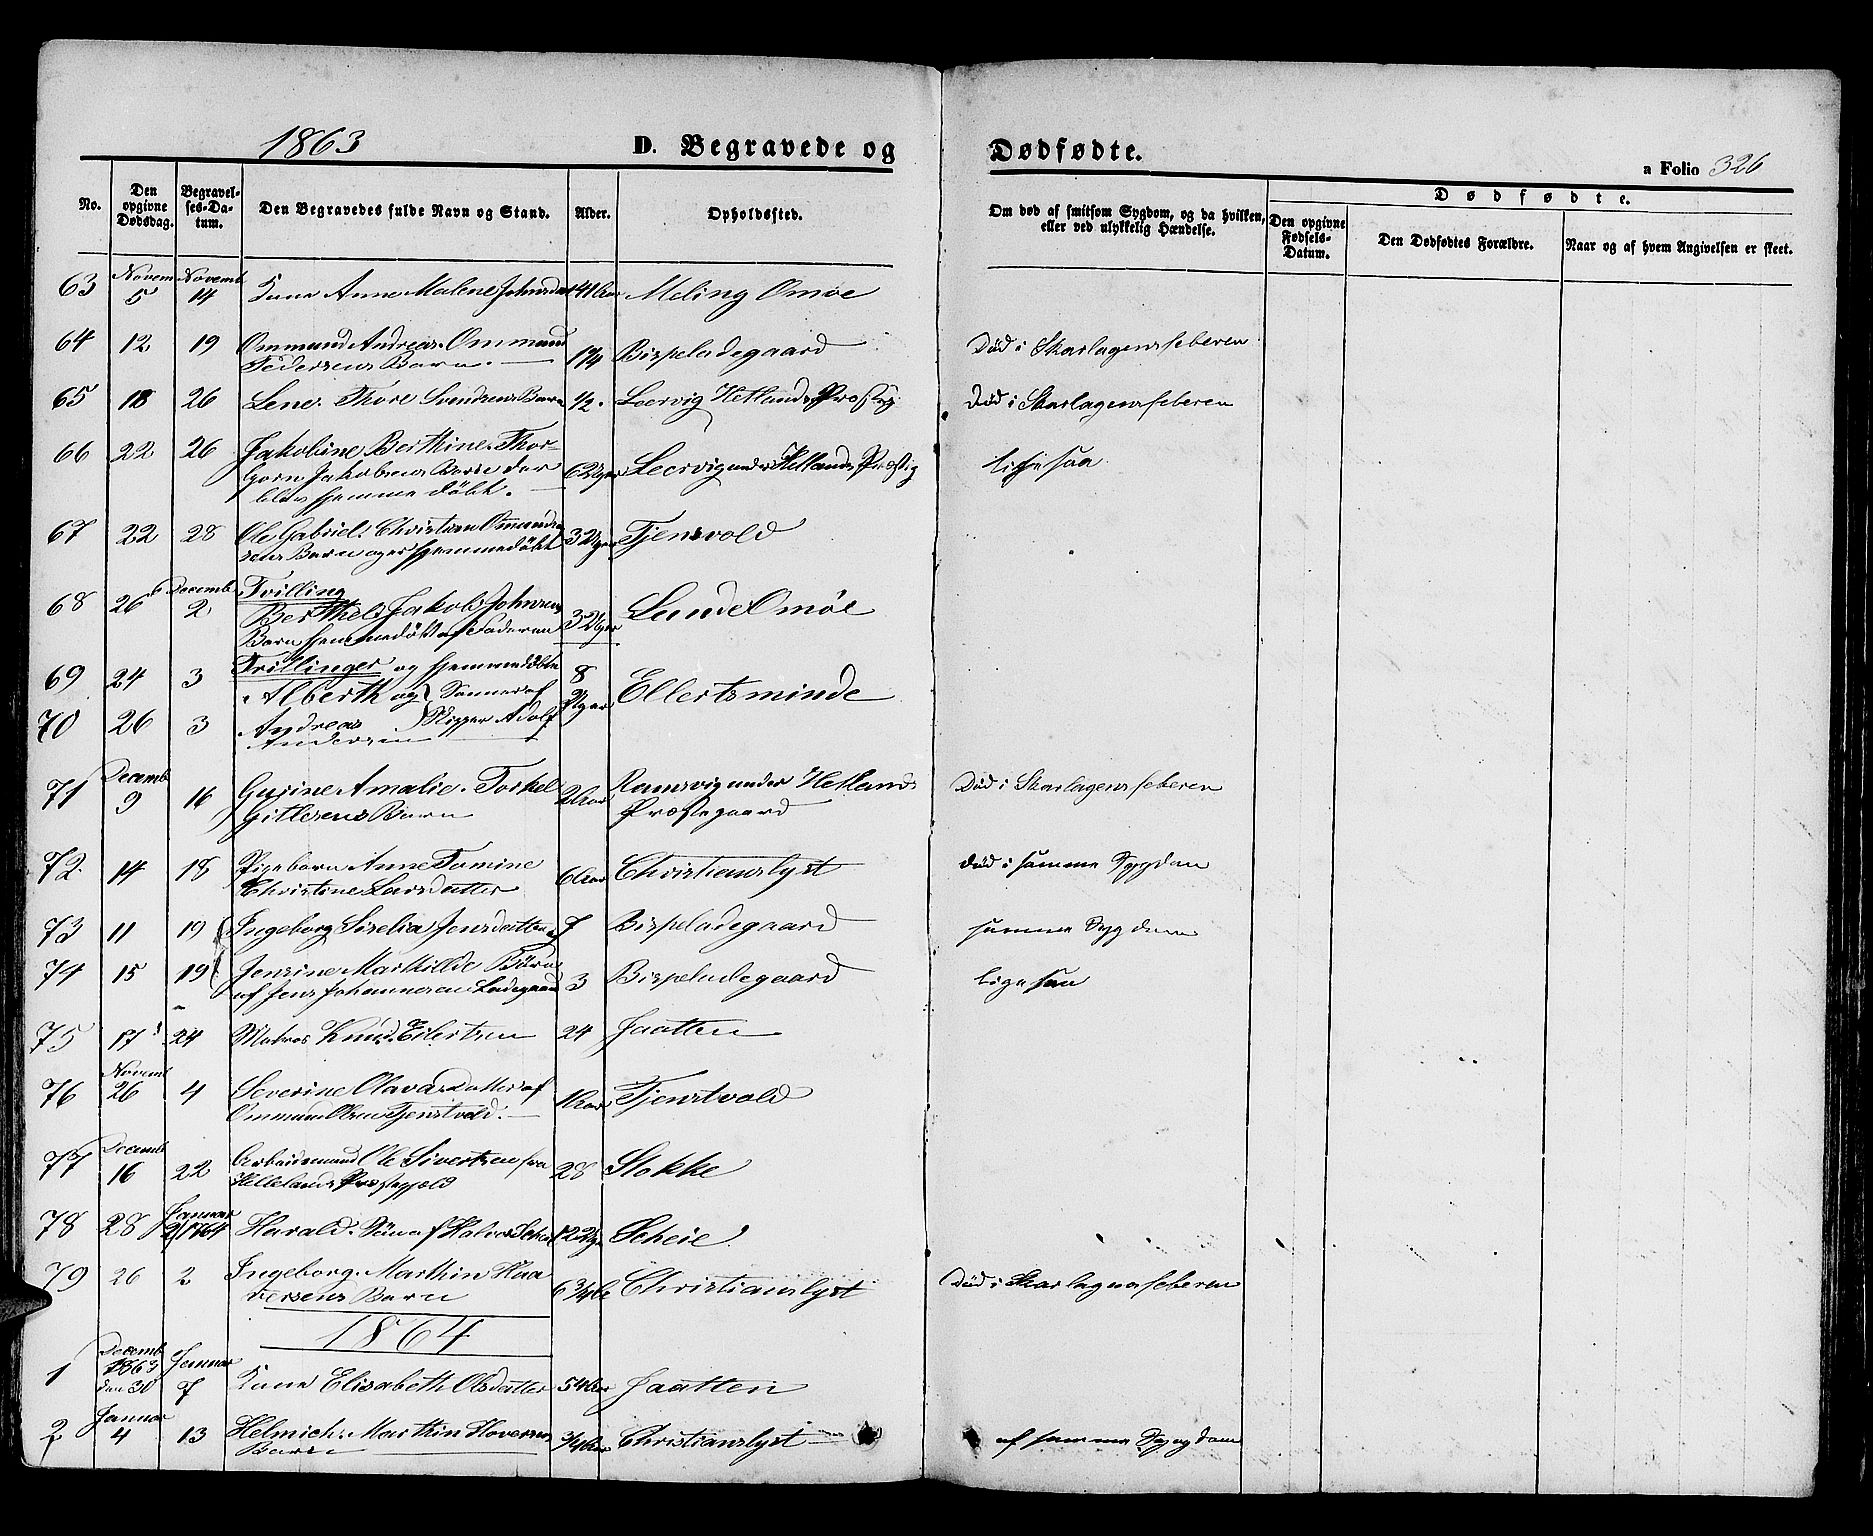 1863 D. Begravede og Dødfødte. a Folio 326
No. Den opgivne Dødsdag. Begravelses-Datum. Den Begravedes fulde Navn og Stand. Alder. Opholdssted. Om død af smitsom Sygdom, og da hvilken, eller ved ulykkelig Hændelse. Dødfødte.
Den opgivne Fødsels-Datum. Den Dødfødtes Forældre. Naar og af hvem Angivelsen er skeet.
63 Novem 5 Novemb 14 Kone Anne Malene Johnsdat 41 Aar Meling Omøe
64 12 19 Ommund Andreas. Ommund
Pedersens Barn. 1 1/4 Bispeladegaard Død i Skarlagensfeberen
65 18 26 Lene. Thore Svendsens Barn 1/2. Leervig Hetlands Præstg. Død i Skarlagensfeberen
66 22 26 Jakobine Berthine. Thor-
bjørn Jakobsens Barn der
blev hjemme døbt. 6 Uger Leervig under Hetlands Præstg ligesaa
67 22 28 Ole Gabriel. Christian Omunds
sens Barn og er hjemmedøbt 3 Uger Tjensvold
68 26 Decemb. 2 Tvilling
Berthel Jakob Johnsens
Barn hjemmedøbt af Faderen 3 Uger Lunde Omøe
69 24 3 Tvillinger og hjemmedøbte
Alberth og Sønner af 8 Uger Ellertsminde
70 26 3 Andreas Skipper Adolf
Andersen
71 Decemb 9 16 Gurine Amalie. Torkel
Gitlesens Barn 2 Aar Ramsvig under Hetlands
Præstegaard Død i Skarlagensfeberen
72. 14 18 Pigebarn Anne Tomine
Christine Larsdatter 6 Aar Christianslyst død i samme Sygdom
73 11 19 Ingeborg Siselia Jensdatter og 7 Bispeladegaard samme Sygdom
74 15 19 Jensine Mathillde Børn
af Jens Johannesen Ladegaard 3 Bispeladegaard ligesaa
75 17 24 Matros Knud Eilertsen 24 Jaatten
76 Novemb 26 4 Severine Olava Datter af
Ommund Olsen Tjenstvold. 1 Aar Tjenstvold
77 Decemb 16 22 Arbeidsmand Ole Sivertsen fra
Hellelands Præstegjeld 28 Stokke
78 28 Januar 2/1864 Harald. Søn af Halvor Scheie 12 Uger Scheie
79 26 2 Ingeborg. Marthin Haa
versens Barn 6 3/4 Christianslyst Død i Skarlagensfeberen
1864
1 Decemb 1863 den 30 Januar 7 Kone Elisabeth Olsdatter 54 Aar Jaatten
2 Januar 4 13 Helmich. Marthin Haversens
Barn 3/4 Aar Christianslyst af samme Sygdom